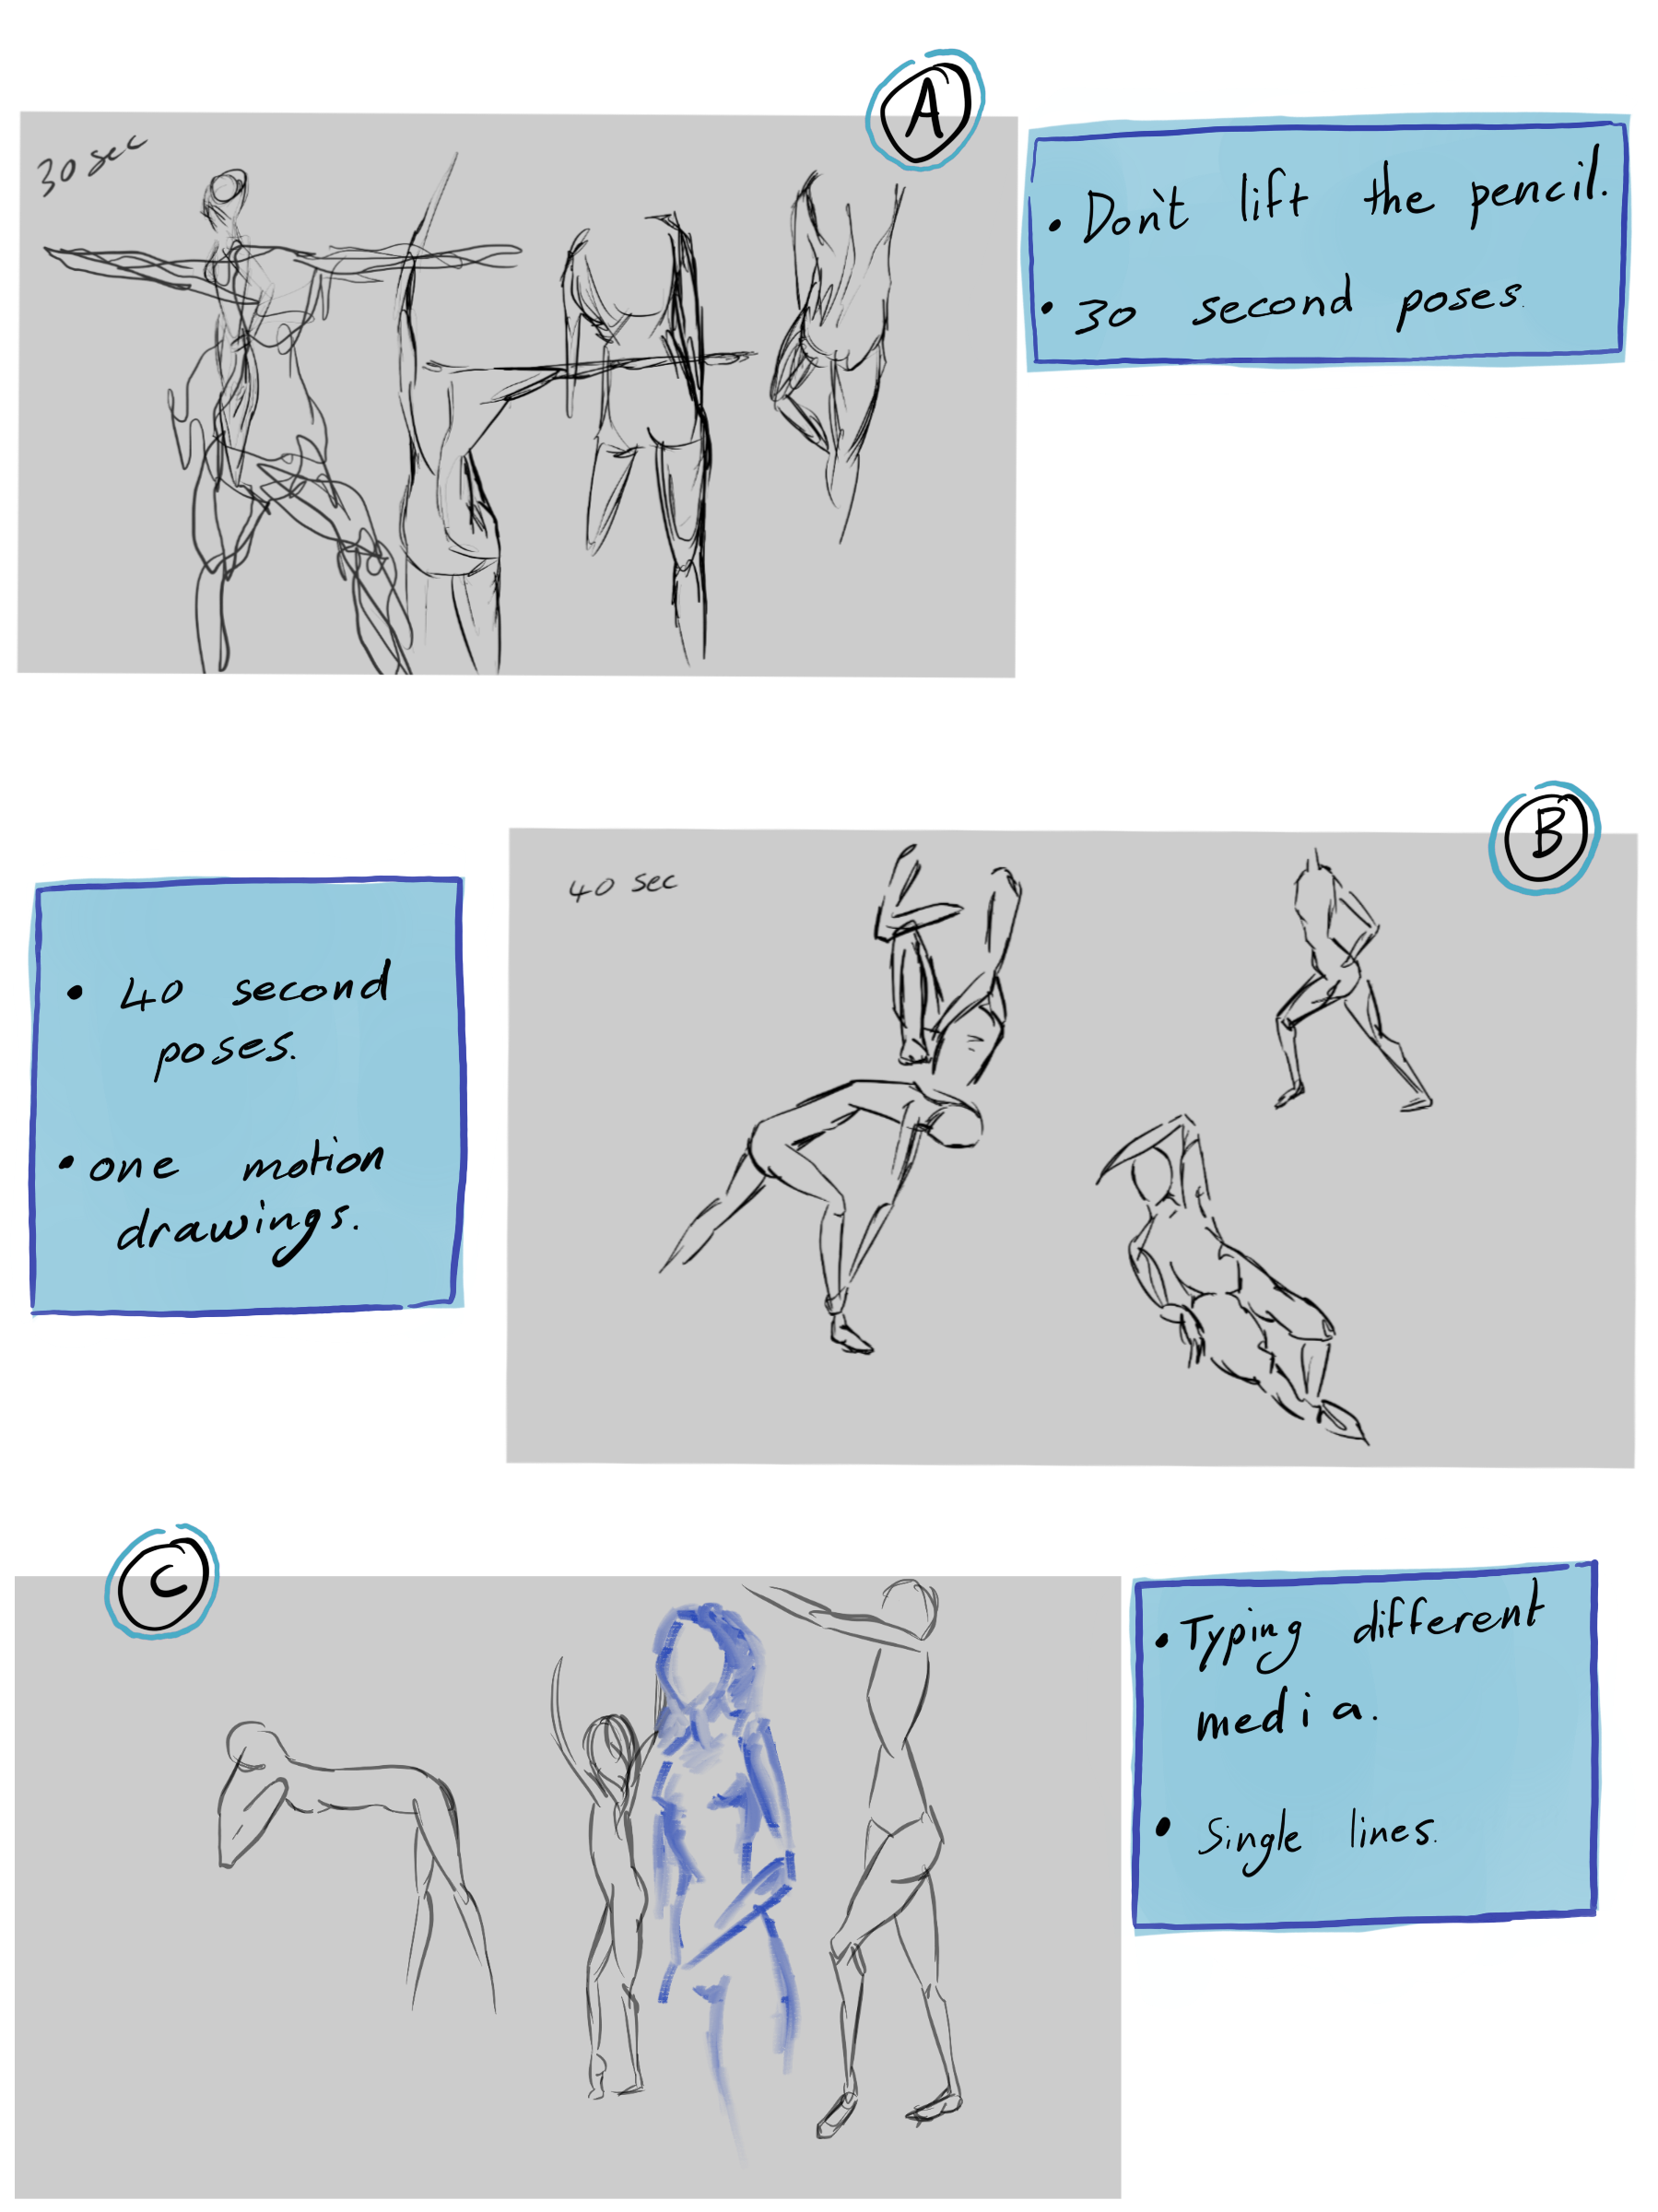 A
30 sec
• Don't lift the pencil.
• 30 second poses.
B
40 sec
• 40 second
poses.
• one motion
drawings.
C
• Typing different
media.
• Single lines.